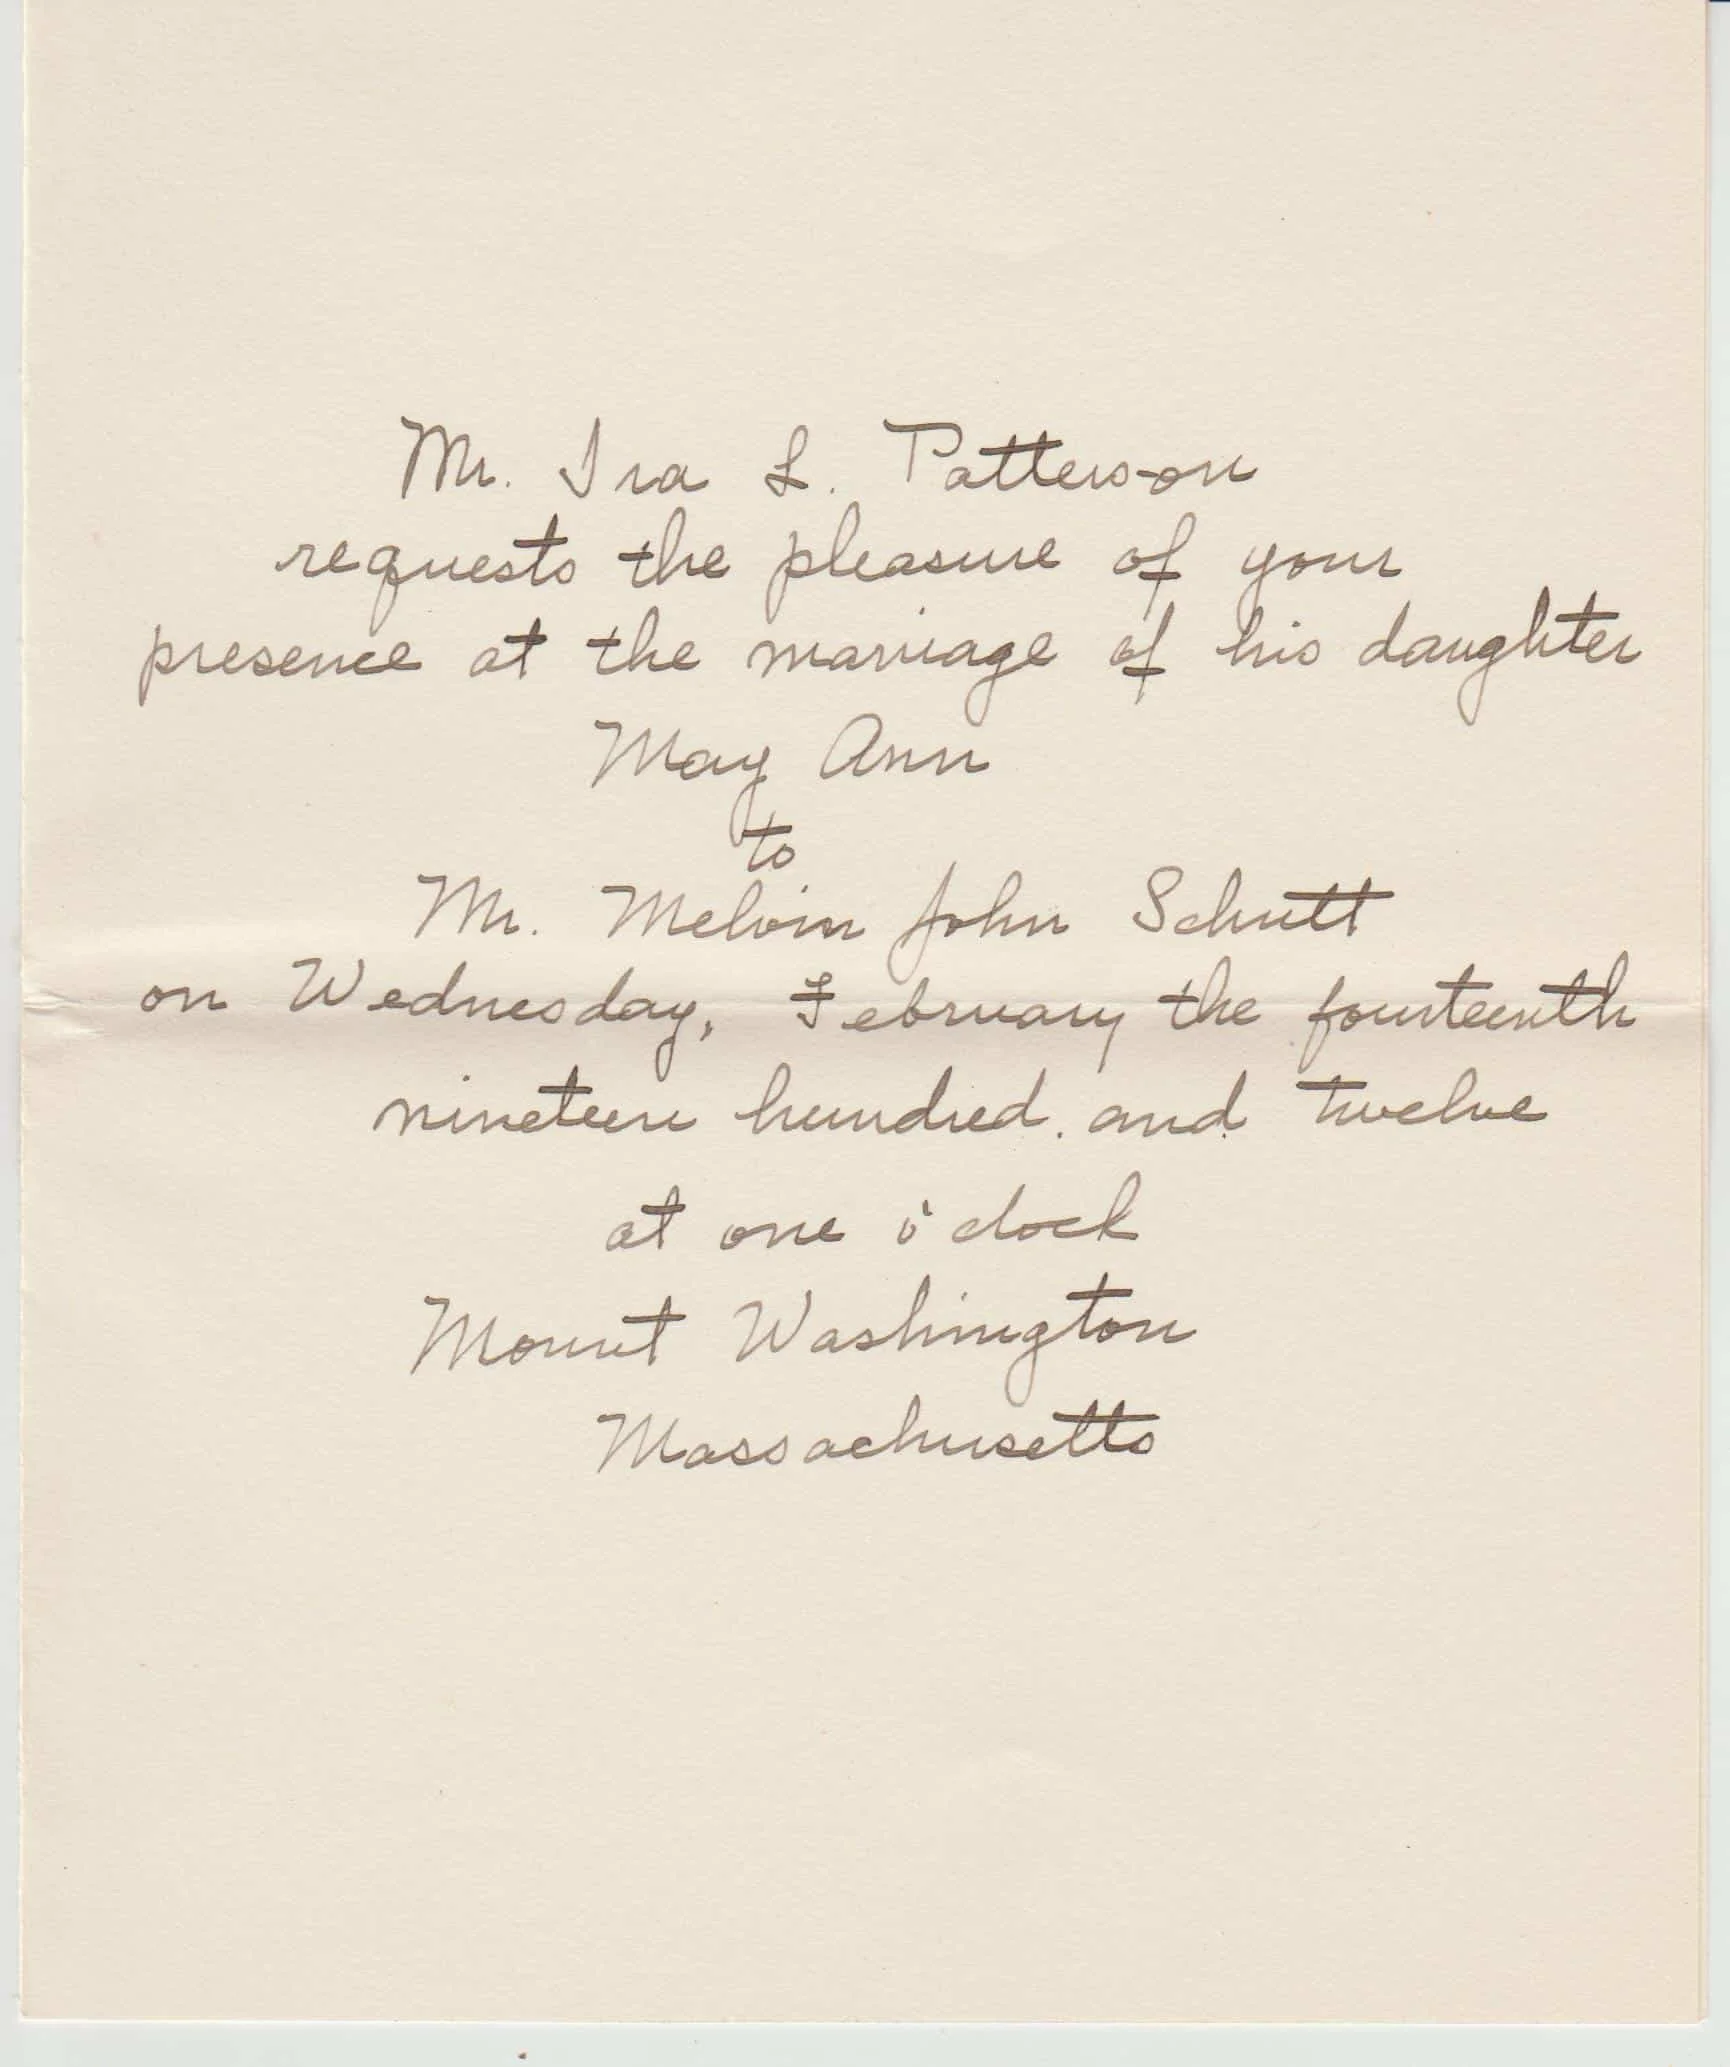 Mr. Ira L. Patterson
requests the pleasure of your
presence at the marriage of his daughter
May Ann
to
Mr. Melvin John Schutt
on Wednesday, February the fourteenth
nineteen hundred and twelve
at one o'clock
Mount Washington
Massachusetts